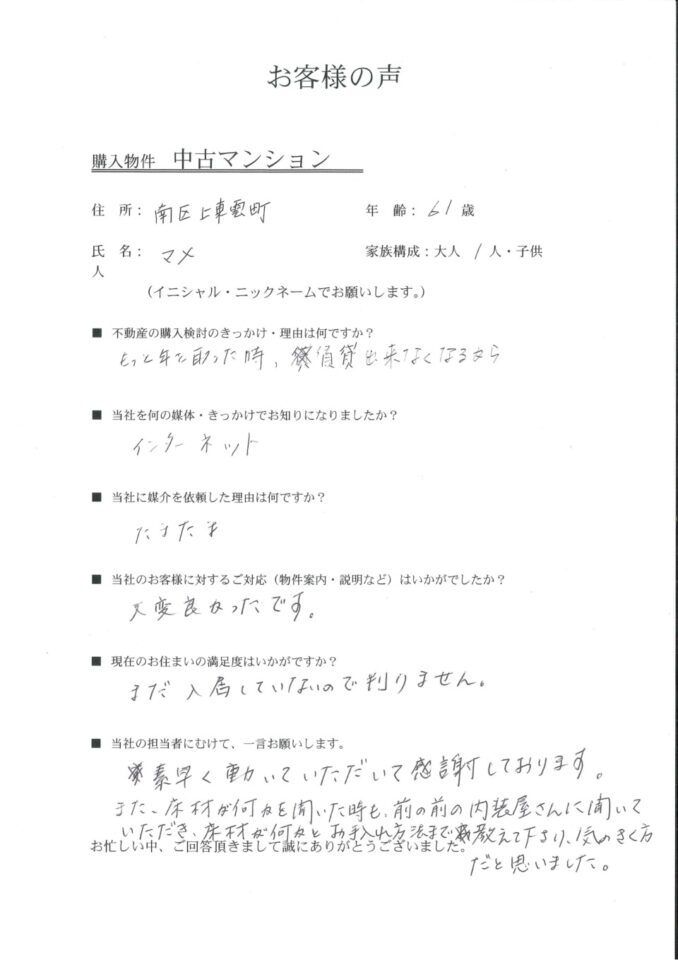 お客様の声
購入物件 中古マンション
住 所： 南区上東雲町 年 齢： 61 歳
氏 名： マメ 家族構成：大人 1 人・子供
人
（イニシャル・ニックネームでお願いします。）
■ 不動産の購入検討のきっかけ・理由は何ですか？
もっと年を取った時、賃貸出来なくなるから
■ 当社を何の媒体・きっかけでお知りになりましたか？
インターネット
■ 当社に媒介を依頼した理由は何ですか？
たまたま
■ 当社のお客様に対するご対応（物件案内・説明など）はいかがでしたか？
大変良かったです。
■ 現在のお住まいの満足度はいかがですか？
まだ入居していないので判りません。
■ 当社の担当者にむけて、一言お願いします。
素早く動いていただいて感謝しております。
また、床材が何かを聞いた時も、前の前の内装屋さんに聞いて
いただき、床材が何かとお手入れ方法まで教えて下さり、気のきく方
お忙しい中、ご回答頂きまして誠にありがとうございました。
だと思いました。